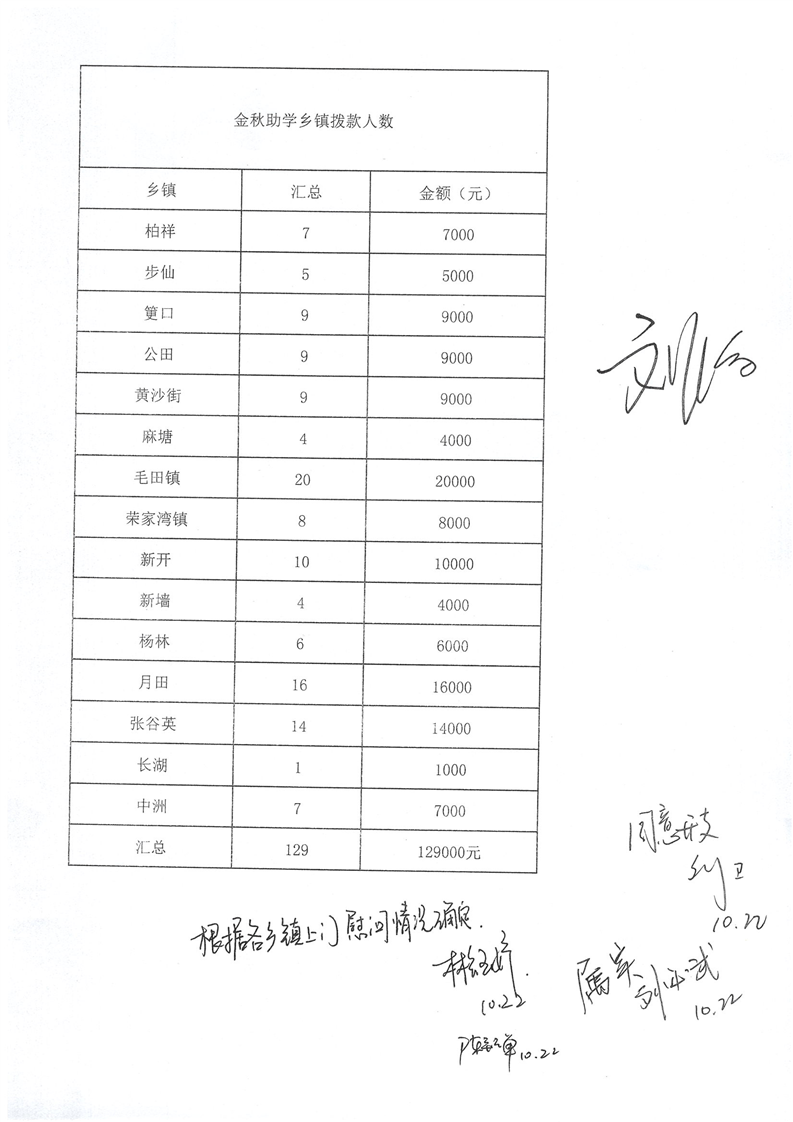 金秋助学乡镇拨款人数
乡镇 汇总 金额（元）
柏祥 7 7000
步仙 5 5000
筻口 9 9000
公田 9 9000
黄沙街 9 9000
麻塘 4 4000
毛田镇 20 20000
荣家湾镇 8 8000
新开 10 10000
新墙 4 4000
杨林 6 6000
月田 16 16000
张谷英 14 14000
长湖 1 1000
中洲 7 7000
汇总 129 129000元
同意开支
10.22
根据各乡镇上门慰问情况确定.
属实
10.22
10.22
10.22